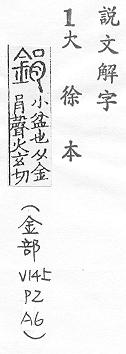 説文解字
1大徐本
鋗 小盆也从金
肙聲火玄切
(金部
V145
P2
A6)